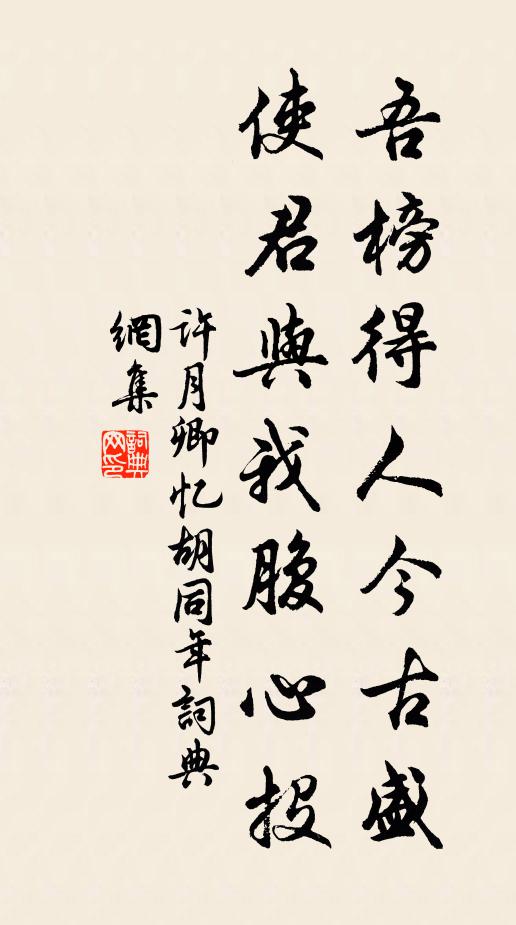 吾榜得人今古盛
使君與我腹心投
許月卿忆胡同年詞典
網集
詞典网印